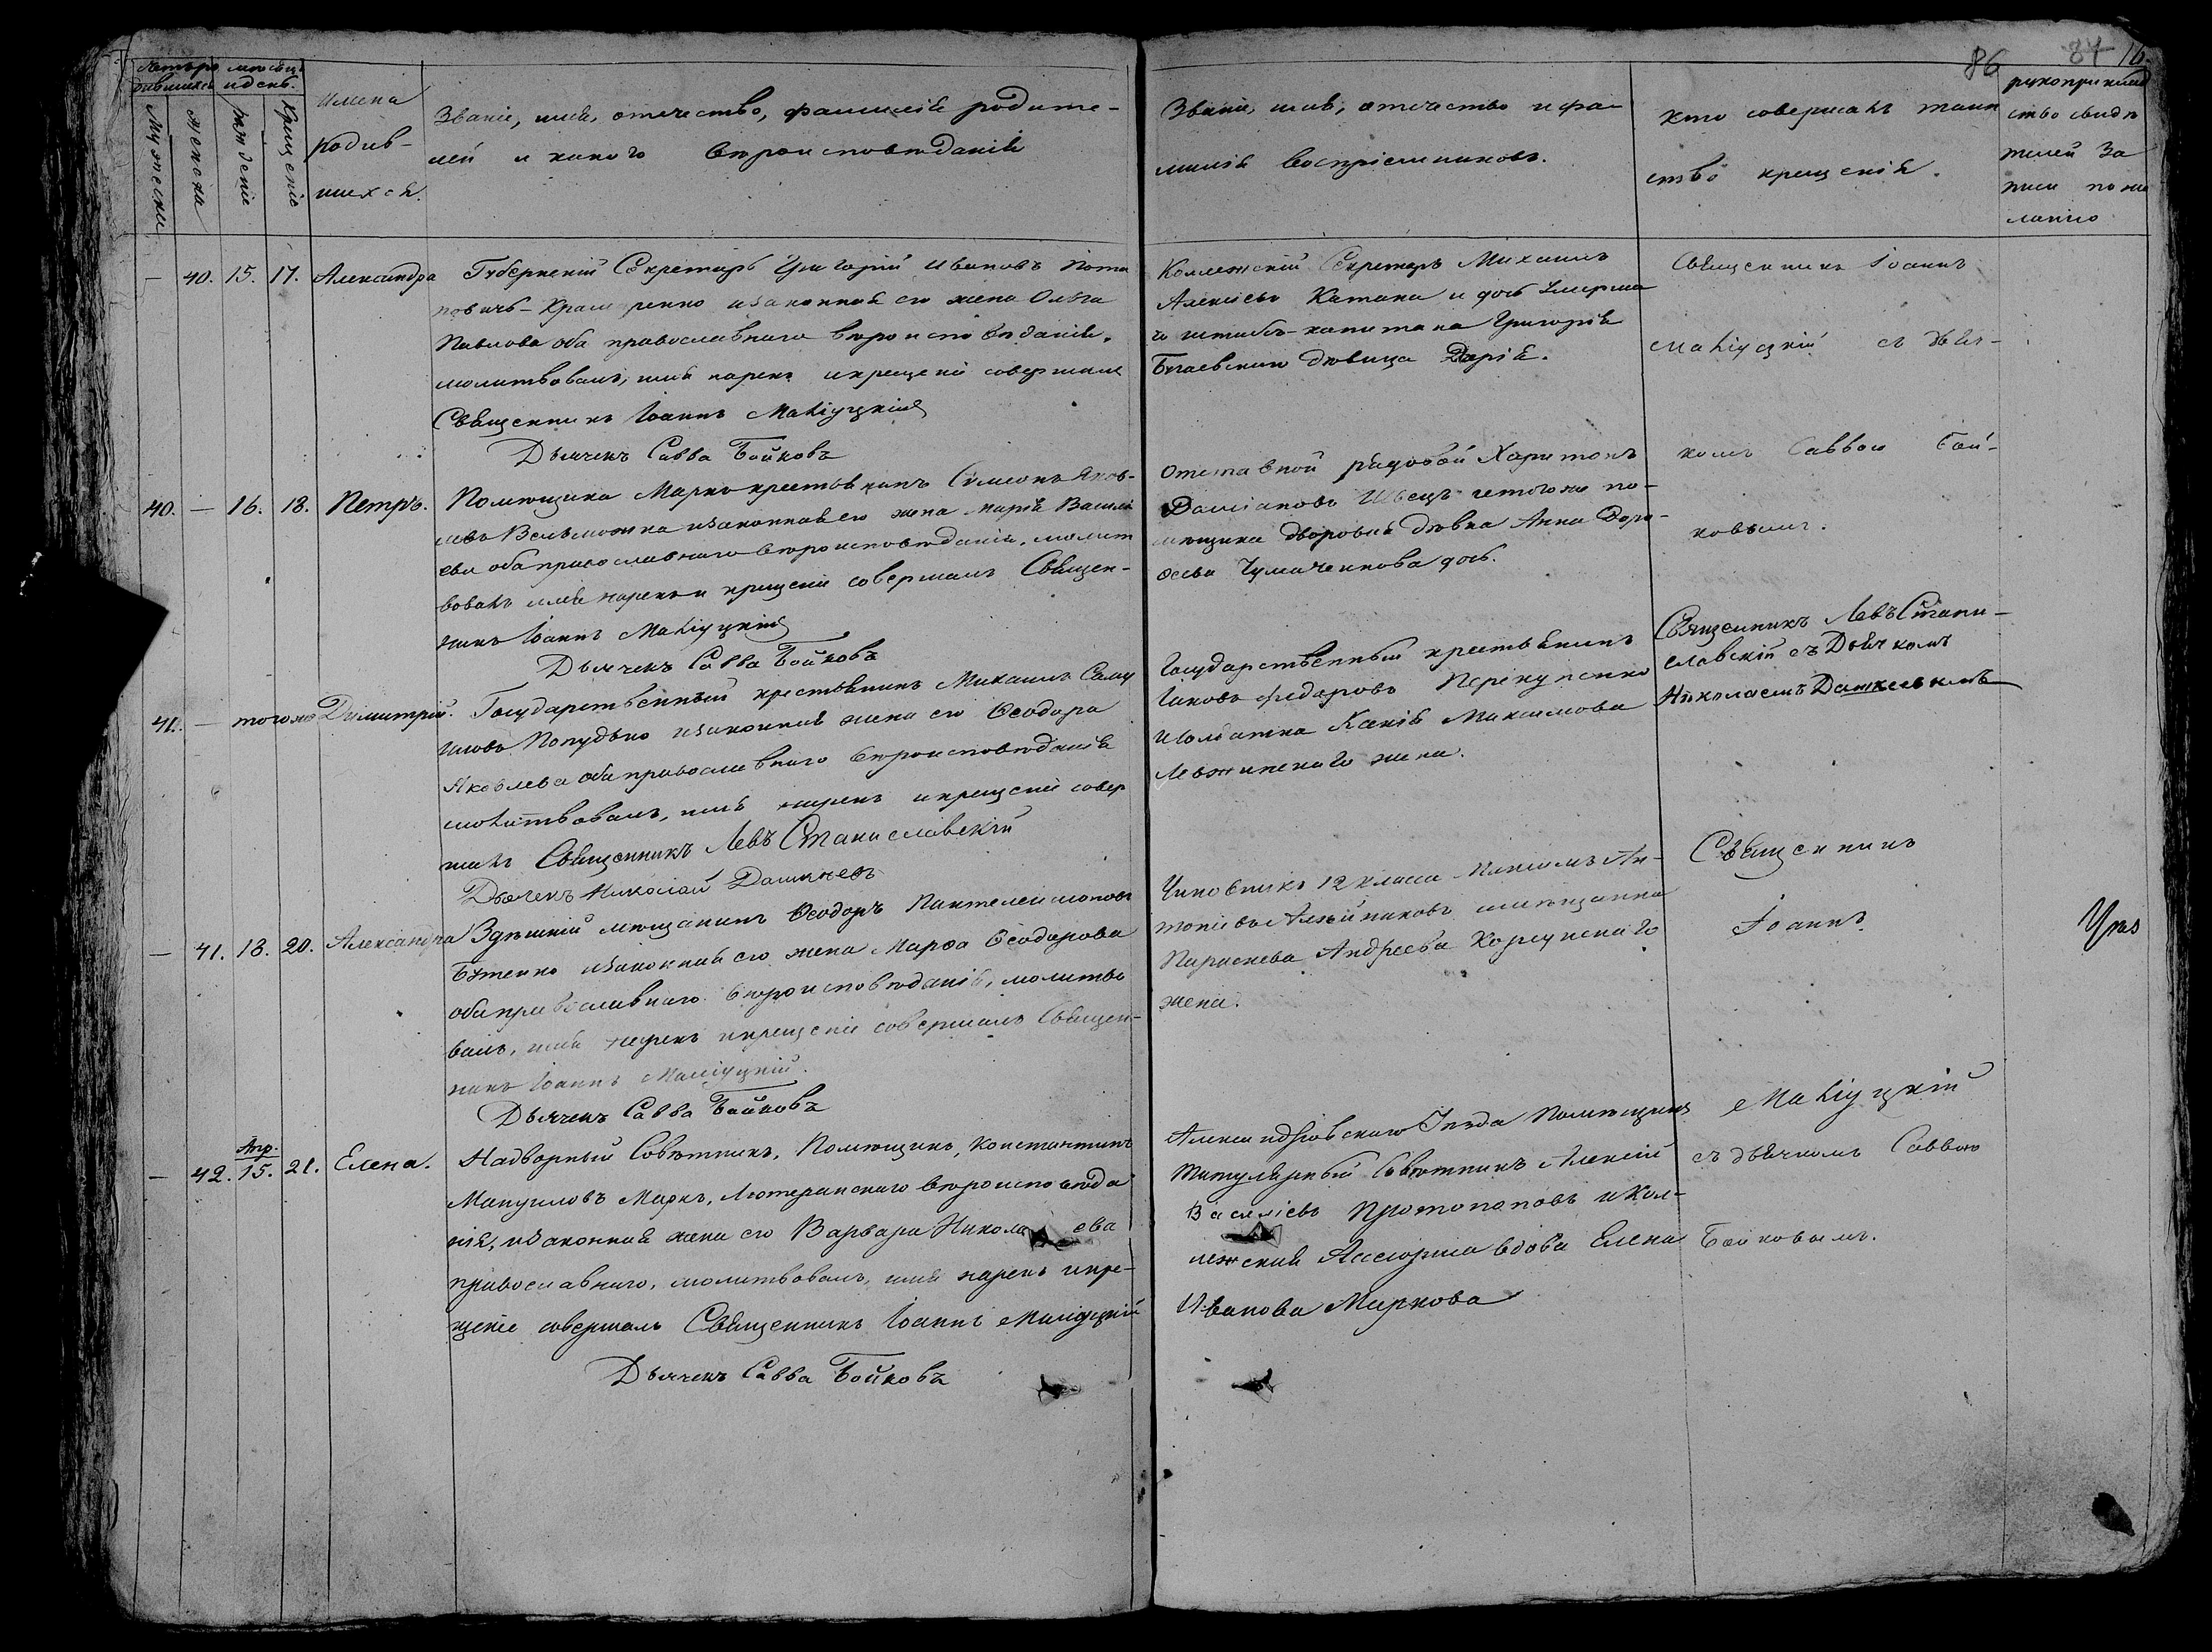 86 84 16.
Счетъ ро- мѣсяцъ
дившихся и день.
Мужеска
женска
рожденіе
Крещеніе
Имена
родив-
шихся.
Званіе, имя, отечество, фамилія родите-
лей и какого вѣроисповѣданія
Званіе, имя, отечество и фа-
милія воспріемниковъ.
Кто совершалъ таин
ство крещенія.
рукоприклад
ство свидѣ
телей за
писи по же
ланію
— 40. 15. 17. Александра
Губернскій Секретарь Григорій Ивановъ Пота
повичъ-Крам ренко и законная его жена Ольга
Павлова оба православнаго вѣроисповѣданія.
молитвовалъ, имя нарекъ и крещеніе совершалъ
Священникъ Іоаннъ Малiуцкій
Дьячекъ Савва Бойковъ
Коллежскій Секретарь Михаилъ
Алексѣевъ Катана и дочь умерша
го штабсъ-капитана Григорія
Бугаевскаго дѣвица Дарія.
Священникъ Іоаннъ
Малiуцкій съ дьяч-
40. — 16. 18. Петръ.
Помѣщика Марка крестьянинъ Симеонъ Яков-
левъ Вельможка и законная его жена Марія Василь
ева оба православнаго вѣроисповѣданія, молит
вовалъ имя нарекъ и крещеніе совершалъ Священ-
никъ Іоаннъ Малiуцкій
Дьячекъ Савва Бойковъ
Отставной рядовой Харитонъ
Даміановъ Швецъ и того же по-
мѣщика дворовая дѣвка Анна Доро-
ѳеева Чумаченкова дочь.
комъ Саввою Бой-
ковымъ.
41. — того же Димитрій.
Государственный крестьянинъ Михаилъ Саму
иловъ Попудько и законная жена его Ѳеодора
Яковлева оба православнаго вѣроисповѣданія
молитвовалъ, имя нарекъ и крещеніе совер
шалъ Священникъ Левъ Станиславскій
Дьячекъ Николай Дашкеевъ
Государственный крестьянинъ
Іаковъ Федоровъ Перекупенко
и солдатка Ксенія Максимова
Левжинскаго жена.
Священникъ Левъ Стани-
славскій съ Дьячкомъ
Николаемъ Дашкеевымъ
— 41. 18. 20. Александра
Здѣшній мѣщанинъ Ѳеодоръ Пантелеимоновъ
Бутенко и законная его жена Марѳа Ѳеодорова
оба православнаго вѣроисповѣданія, молитво
валъ, имя нарекъ и крещеніе совершалъ Священ-
никъ Іоаннъ Малiуцкій.
Дьячекъ Савва Бойковъ
Чиновникъ 12 класса Максимъ Ан-
тоніевъ Алейниковъ и мѣщанка
Параскева Андреева Корсунскаго
жена.
Священникъ
Іоаннъ
— 42. Апр. 15. 21. Елена.
Надворный Совѣтникъ, Помѣщикъ, Константинъ
Мануиловъ Маркъ, Лютеранскаго вѣроисповѣда
нія, и законная жена его Варвара Никола ева
православнаго, молитвовалъ, имя нарекъ и кре-
щеніе совершалъ Священникъ Іоаннъ Малiуцкій
Дьячекъ Савва Бойковъ
Александровскаго уѣзда Помѣщикъ
Титулярный Совѣтникъ Алексій
Василіевъ Протопоповъ и Кол-
лежская Ассесорша вдова Елена
Иванова Маркова
Малiуцкій
съ дьячкомъ Саввою
Бойковымъ.